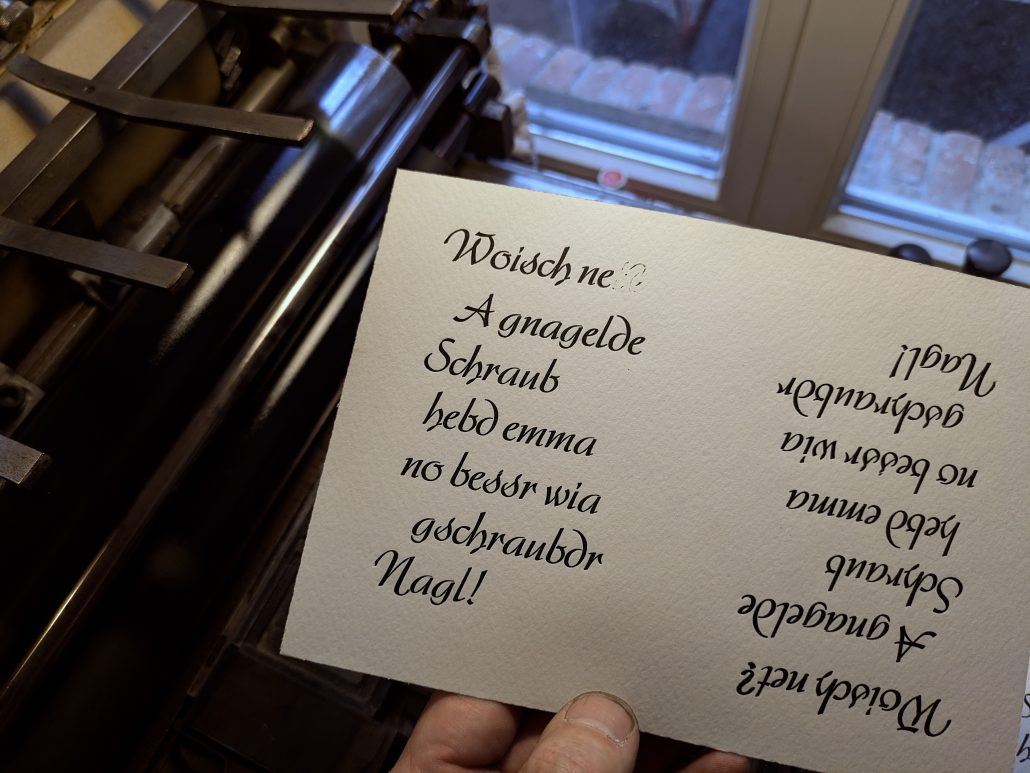 Woisch ne
A gnagelde
Schraub
hebd emma
no bessr wia
gschraubdr
Nagl!
Woisch net?
A gnagelde
Schraub
hebd emma
no bessr wia
gschraubdr
Nagl!